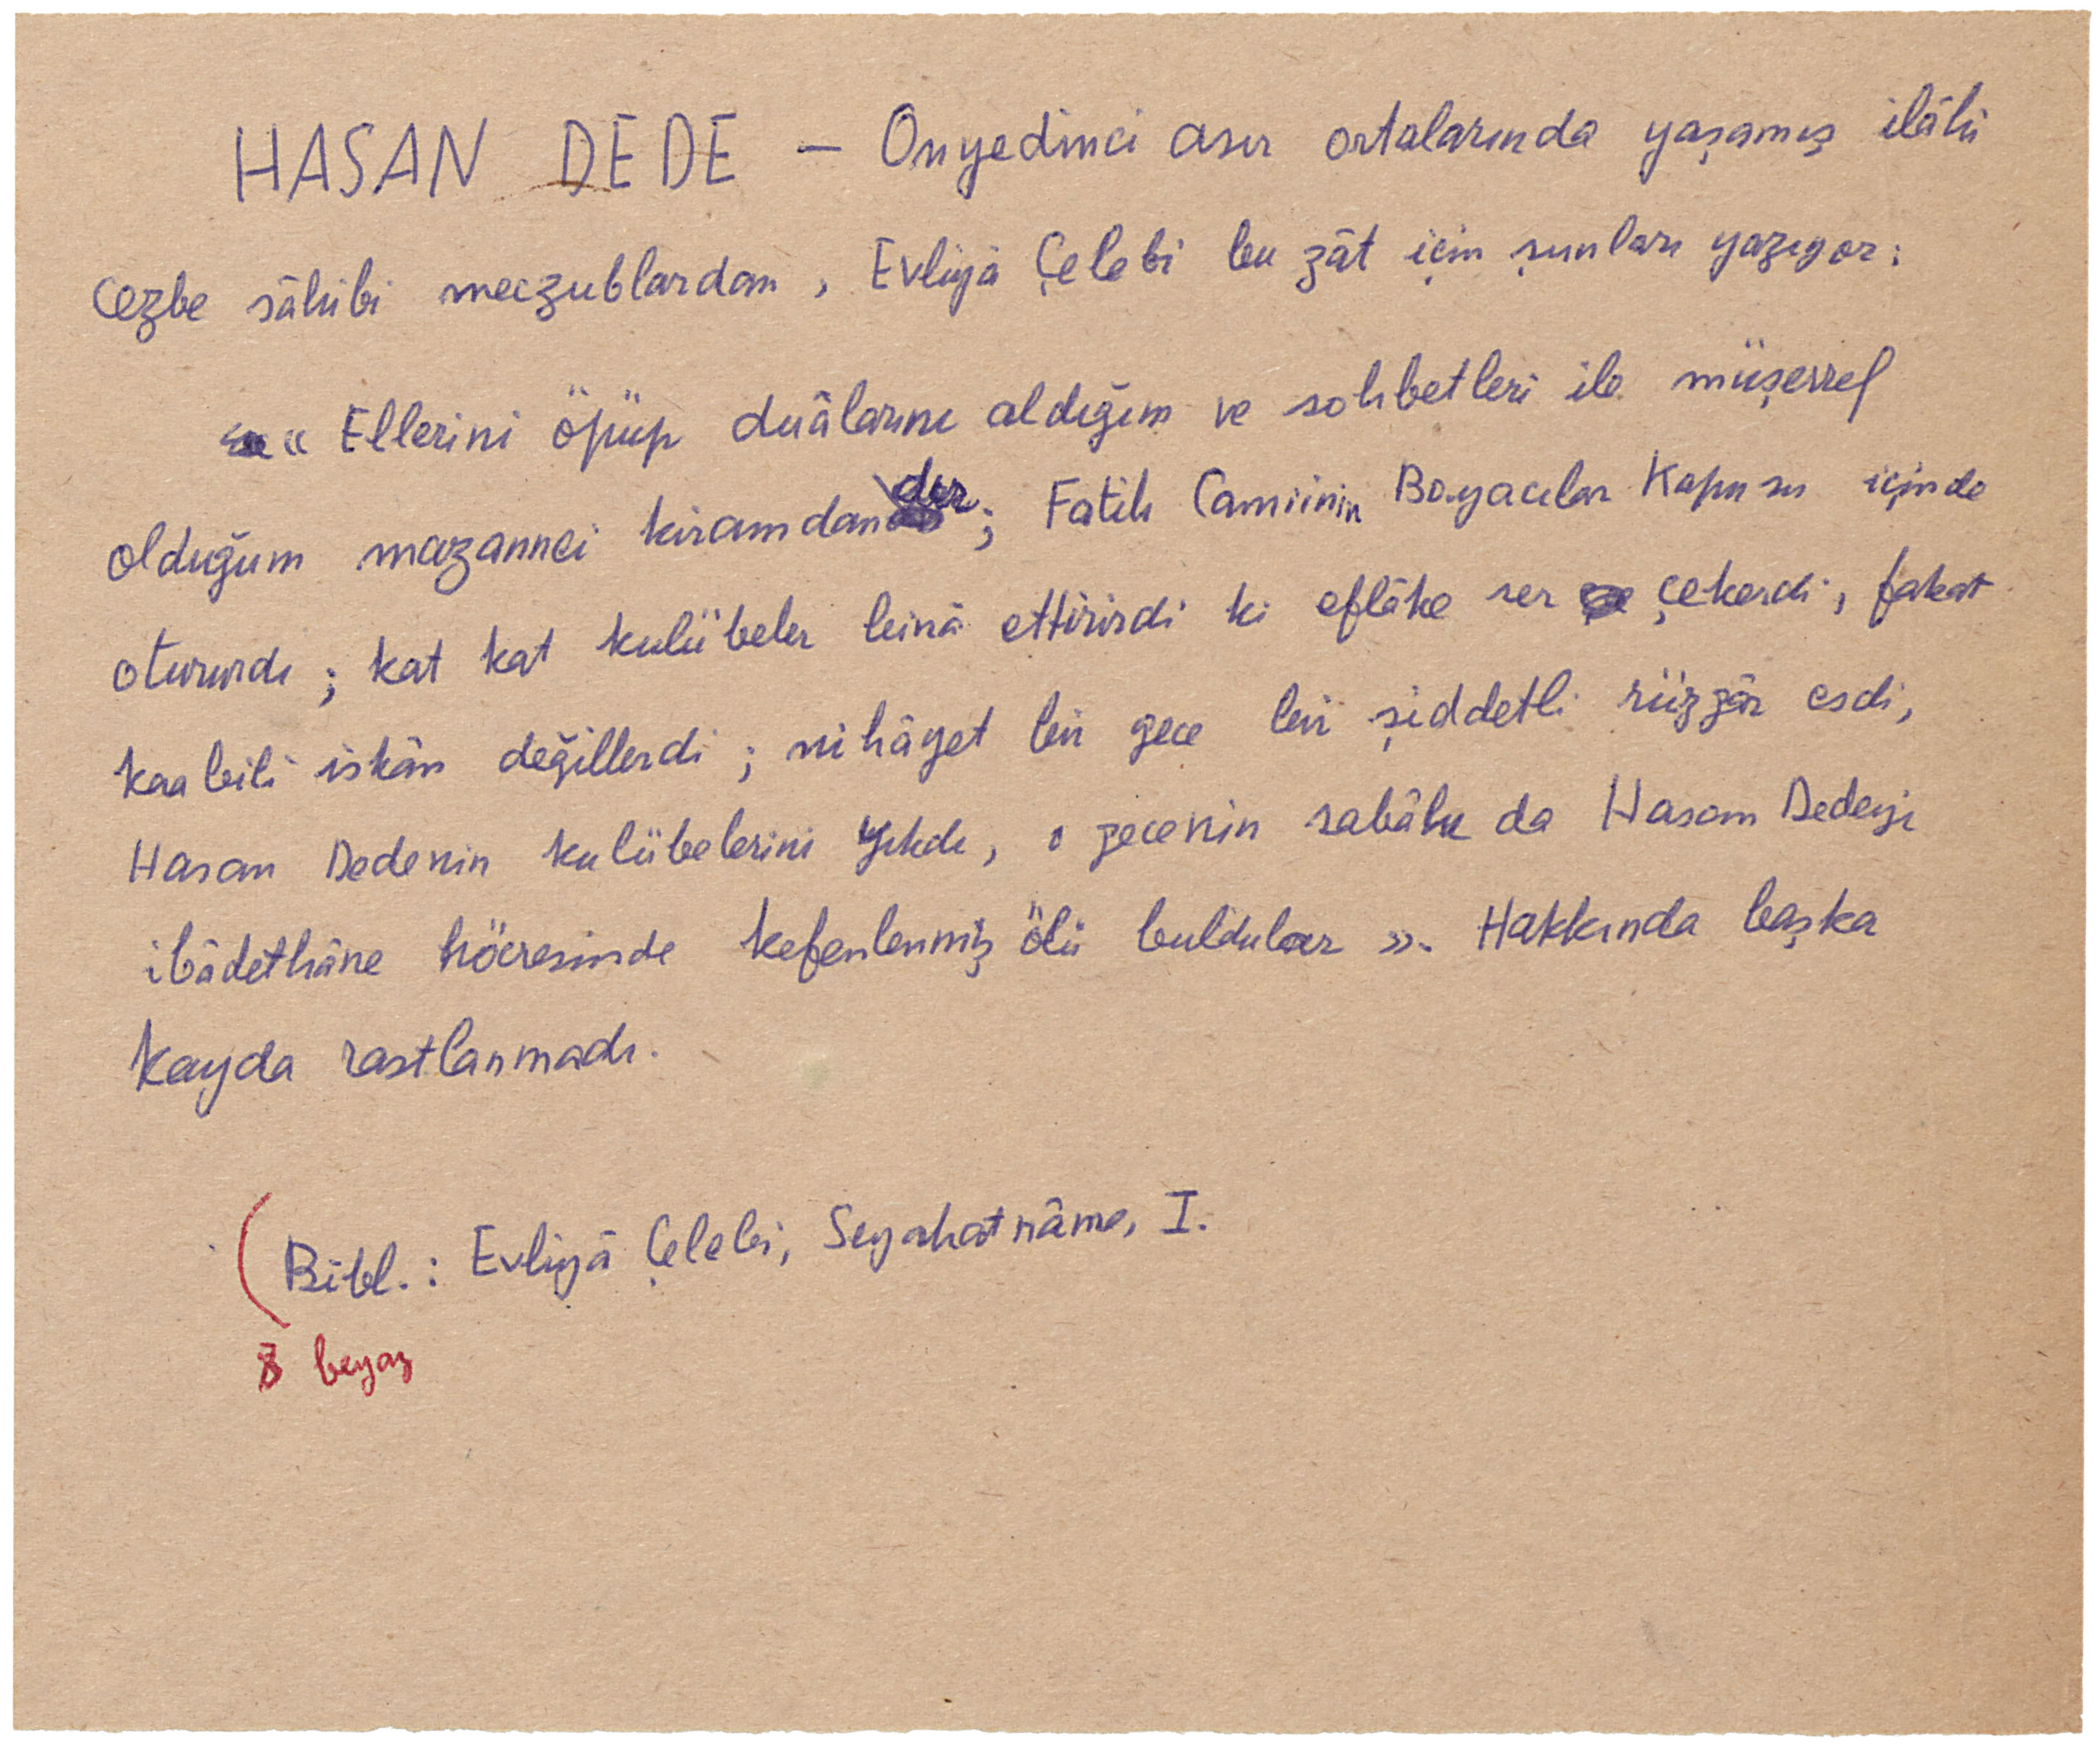 HASAN DEDE — Onyedinci asır ortalarında yaşamış ilâhi
cezbe sâhibi meczublardan, Evliyâ Çelebi bu zât için şunları yazıyor:
« Ellerini öpüp duâlarını aldığım ve sohbetleri ile müşerref
olduğum mazannei kiramdandır; Fatih Camiinin Boyacılar Kapusu içinde
otururdı; kat kat kulübeler binâ ettirirdi ki eflâke ser çekerdi, fakat
kaabili iskân değillerdi; nihâyet bir gece bir şiddetli rüzgâr esdi,
Hasan Dedenin kulübelerini yıkdı, o gecenin sabâhı da Hasan Dedeyi
ibâdethâne höcresinde kefenlenmiş ölü buldular ». Hakkında başka
kayda rastlanmadı.
Bibl.: Evliyâ Çelebi, Seyahatnâme, I.
8 beyaz